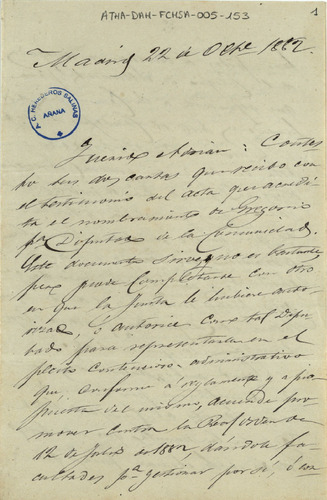 ATHA-DAH-FCHSA-005-153
1
Madrid 22 de Obre 1882
P. C. HEREDEROS SALINAS
AÑANA
Querido Adrian: Contes
to sus dos cartas que recibo con
el testimonio del acta que acredi
ta el nombramiento de Gregorio
pª Diputado de la Comunidad.
Este documento sirve, no es bastante
pues puede completarse con otro
en que la Junta le hubiere auto
rizado, o autorice como tal Dipu
tado para representarla en el
pleito contencioso administrativo
que, conforme a reglamento y a pro
puesta del mismo, acuerde pro
mover contra la Real orden de
12 de Julio de 1882, dándole fa
cultades pª gestionar por sí, ó con